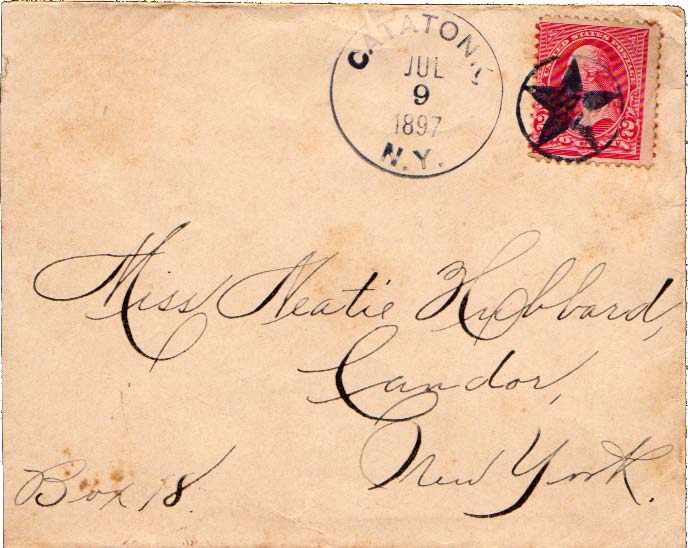 CATATONK
JUL
9
1897
N.Y.
UNITED STATES POSTAGE
2 2
Miss Neatie Hubbard,
Candor,
New York.
Box 18.